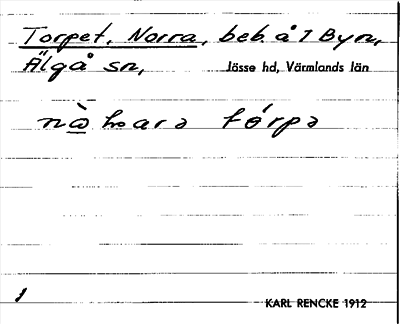 Torpet, Norra, beb. å 1 Byn,
Älgå sn,
Jösse hd, Värmlands län
tórpə
1
KARL RENCKE 1912